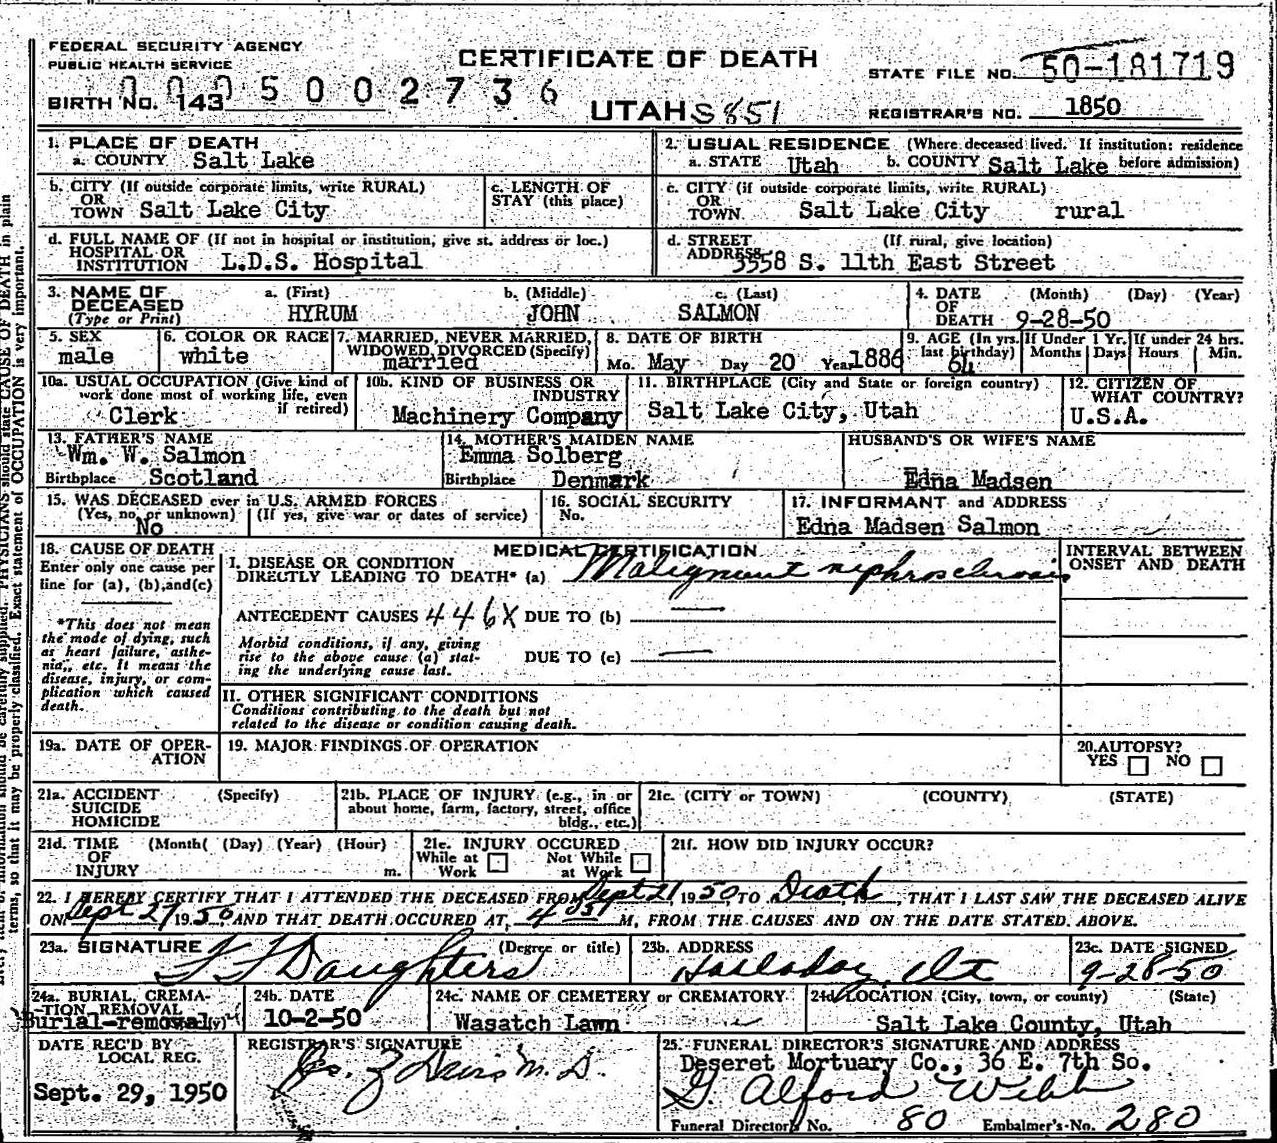 FEDERAL SECURITY AGENCY
PUBLIC HEALTH SERVICE
CERTIFICATE OF DEATH
STATE FILE NO. 50-181719
0005002736
BIRTH NO. 143
UTAH S851
REGISTRAR'S NO. 1850
1. PLACE OF DEATH
a. COUNTY Salt Lake
2. USUAL RESIDENCE (Where deceased lived. If institution: residence before admission)
a. STATE Utah b. COUNTY Salt Lake
b. CITY (If outside corporate limits, write RURAL)
OR
TOWN Salt Lake City
c. LENGTH OF
STAY (this place)
c. CITY (if outside corporate limits, write RURAL)
OR
TOWN. Salt Lake City rural
d. FULL NAME OF (If not in hospital or institution, give st. address or loc.)
HOSPITAL OR
INSTITUTION L.D.S. Hospital
d. STREET (If rural, give location)
ADDRESS 3558 S. 11th East Street
3. NAME OF
DECEASED
(Type or Print)
a. (First)
HYRUM
b. (Middle)
JOHN
c. (Last)
SALMON
4. DATE (Month) (Day) (Year)
OF
DEATH 9-28-50
5. SEX
male
6. COLOR OR RACE
white
7. MARRIED, NEVER MARRIED,
WIDOWED, DIVORCED (Specify)
married
8. DATE OF BIRTH
Mo. May Day 20 Year 1886
9. AGE (In yrs.
last birthday)
64
If Under 1 Yr.
Months Days
If under 24 hrs.
Hours Min.
10a. USUAL OCCUPATION (Give kind of
work done most of working life, even
if retired)
Clerk
10b. KIND OF BUSINESS OR
INDUSTRY
Machinery Company
11. BIRTHPLACE (City and State or foreign country)
Salt Lake City, Utah
12. CITIZEN OF
WHAT COUNTRY?
U.S.A.
13. FATHER'S NAME
Wm. W. Salmon
Birthplace Scotland
14. MOTHER'S MAIDEN NAME
Emma Solberg
Birthplace Denmark
HUSBAND'S OR WIFE'S NAME
Edna Madsen
15. WAS DECEASED ever in U.S. ARMED FORCES
(Yes, no, or unknown) (If yes, give war or dates of service)
No
16. SOCIAL SECURITY
No.
17. INFORMANT and ADDRESS
Edna Madsen Salmon
18. CAUSE OF DEATH
Enter only one cause per
line for (a), (b), and (c)
*This does not mean
the mode of dying, such
as heart failure, asthe-
nia, etc. It means the
disease, injury, or com-
plication which caused
death.
MEDICAL CERTIFICATION
I. DISEASE OR CONDITION
DIRECTLY LEADING TO DEATH* (a) Malignant nephrosclerosis
ANTECEDENT CAUSES 446X DUE TO (b)
Morbid conditions, if any, giving
rise to the above cause (a) stat-
ing the underlying cause last.
DUE TO (c)
II. OTHER SIGNIFICANT CONDITIONS
Conditions contributing to the death but not
related to the disease or condition causing death.
INTERVAL BETWEEN
ONSET AND DEATH
19a. DATE OF OPER-
ATION
19. MAJOR FINDINGS OF OPERATION
20. AUTOPSY?
YES NO
21a. ACCIDENT (Specify)
SUICIDE
HOMICIDE
21b. PLACE OF INJURY (e.g., in or
about home, farm, factory, street, office
bldg., etc.)
21c. (CITY or TOWN) (COUNTY) (STATE)
21d. TIME (Month( (Day) (Year) (Hour)
OF
INJURY m.
21e. INJURY OCCURED
While at Work Not While at Work
21f. HOW DID INJURY OCCUR?
22. I HEREBY CERTIFY THAT I ATTENDED THE DECEASED FROM Sept 21 1950 TO Death, THAT I LAST SAW THE DECEASED ALIVE
ON Sept 27 1950 AND THAT DEATH OCCURED AT, 4 05 M, FROM THE CAUSES AND ON THE DATE STATED ABOVE.
23a. SIGNATURE (Degree or title)
Daughters
23b. ADDRESS
Holladay, Ut
23c. DATE SIGNED
9-28-50
24a. BURIAL, CREMA-
TION REMOVAL
Burial-removal
24b. DATE
10-2-50
24c. NAME OF CEMETERY or CREMATORY
Wasatch Lawn
24d LOCATION (City, town, or county) (State)
Salt Lake County, Utah
DATE REC'D BY
LOCAL REG.
Sept. 29, 1950
REGISTRAR'S SIGNATURE
Davis M.D.
25. FUNERAL DIRECTOR'S SIGNATURE AND ADDRESS
Deseret Mortuary Co., 36 E. 7th So.
G. Alford Webb
Funeral Director's No. 80 Embalmer's No. 280